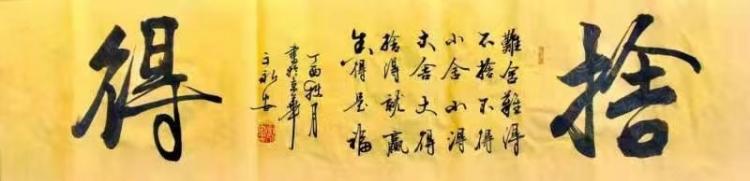 捨
難舍難得
不捨不得
小舍小得
大舍大得
捨得就贏
得是福
丁酉桂月
書於京華
得